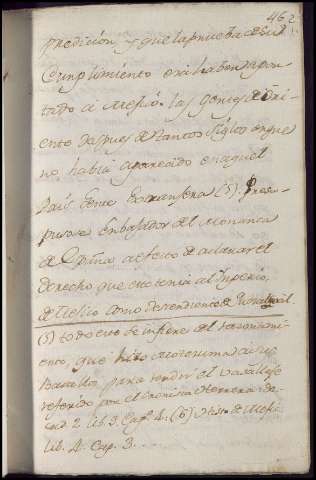 462
predicion y que la prueba de su
Cumplimiento era haber apor-
tado á Mexico las gentes de Ori-
ente despues de tantos siglos en que
no habia aparecido en aquel
Pais Gente Extrangera (5). Presu-
pusose Embajador del Monarca
de España a efecto de aclarar el
derecho que este tenia al Imperio
de Mexico como descendiente de
(5) todo esto se infiere del razonami-
ento, que hizo Moctezuma a sus
Vasallos para rendir el vasallaje
referido por el Cronista Herrera De-
cad. 2. lib. 3. Cap. 4. (6) Histo. de Mexi-
lib. 4. Cap. 3.